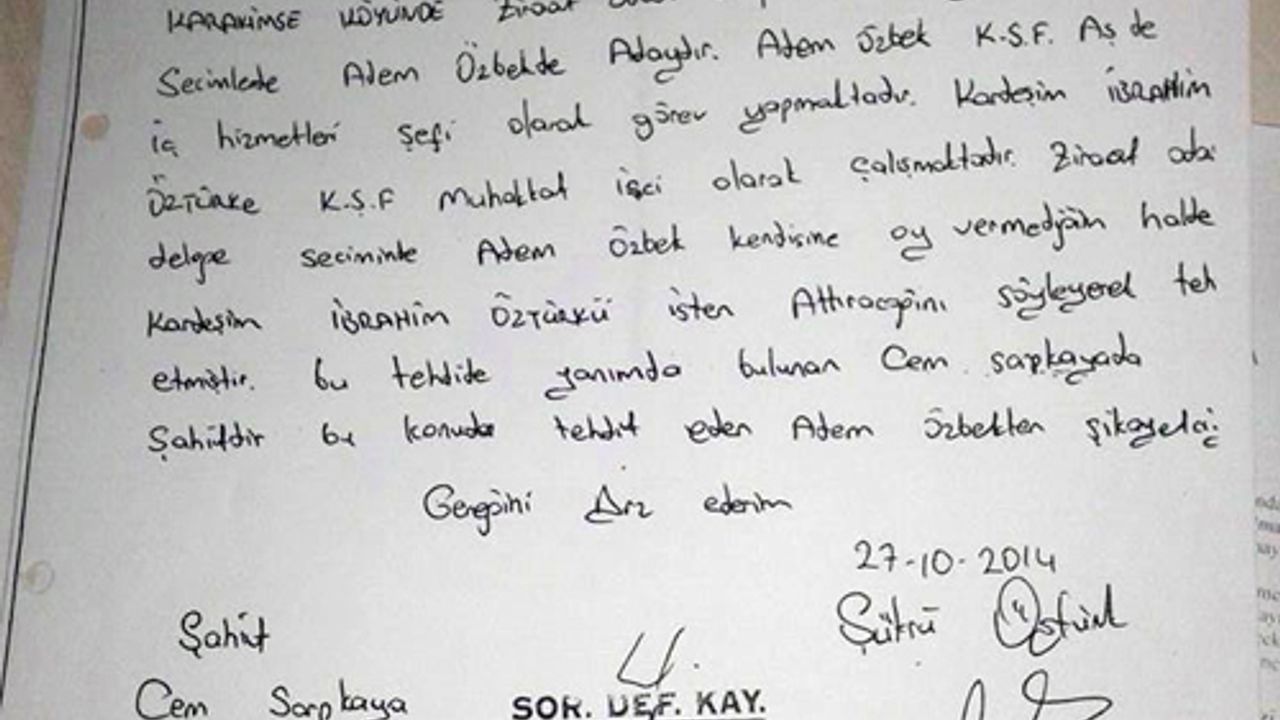 KARAKİMSE KÖYÜNDE Ziraat
Secimlede Adem Özbekde Adaydır. Adem Özbek K.Ş.F. Aş de
iç hizmetleri Şefi olarak görev yapmaktadır. Kardeşim İBRAHİM
ÖZTÜRKe K.Ş.F Muhakkat işci olarak Çalışmaktadır. Ziraat oda
delgee seciminde Adem Özbek kendisine oy vermedjğim halde
Kardeşim İBRAHİM ÖZTÜRKÜ işten Attıracağını söyleyerek teh
etmiştir. bu tehdide yanımda bulunan Cem sarpkayada
Şahitdir bu konuda tehdit eden Adem Özbekten şikayetci
Gereğini Arz ederim
27-10-2014
Şükrü Öztürk
Şahit
Cem Sarpkaya
SOR. DEF. KAY.